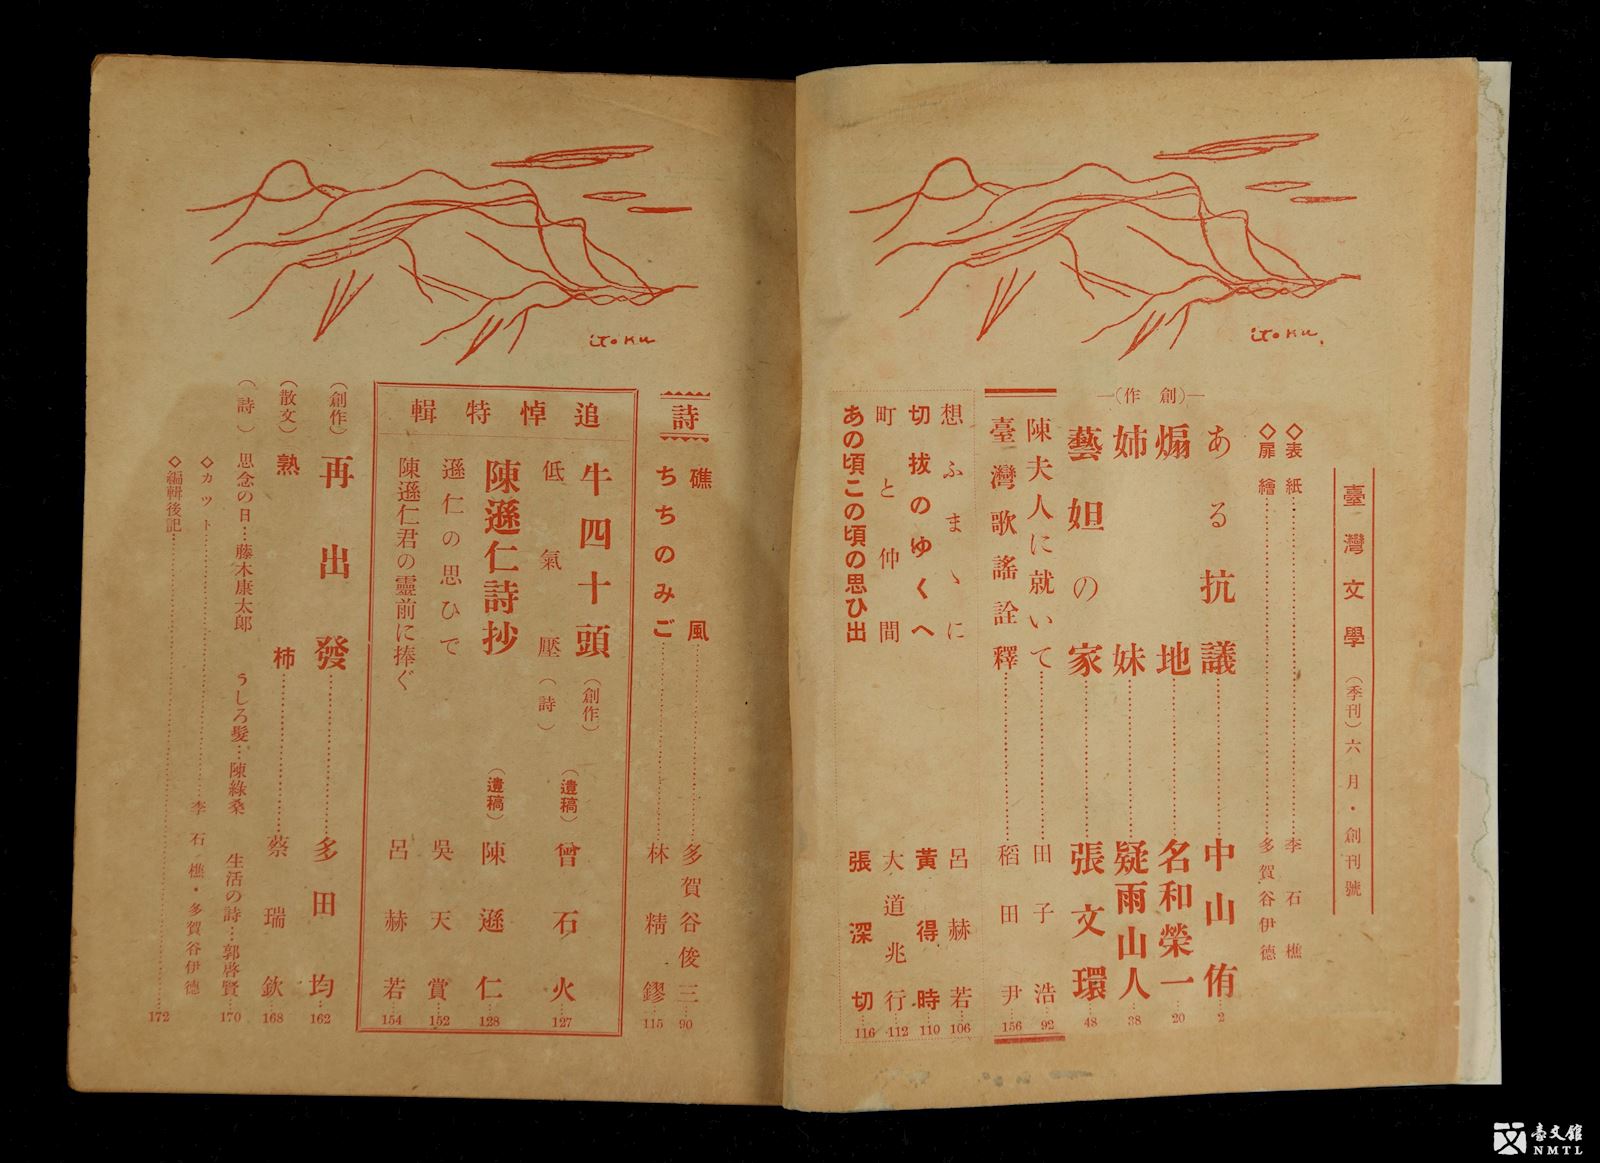 臺灣文學（季刊）六月・創刊號
◇表紙 李石樵
◇扉繪 多賀谷伊德
―（創作）―
ある抗議 中山侑 2
煽地 名和榮一 20
姉妹 疑雨山人 38
藝妲の家 張文環 48
陳夫人に就いて 田子浩 92
臺灣歌謠詮釋 稻田尹 156
想ふまゝに 呂赫若 106
切拔のゆくへ 黃得時 110
町と仲間 大道兆行 112
あの頃この頃の思ひ出 張深切 116
itoku.
詩
礁風 多賀谷俊三 90
ちちのみご 林精鏐 115
追悼特輯
牛四十頭（創作）
低氣壓（詩）（遺稿）曾石火 127
陳遜仁詩抄（遺稿）陳遜仁 128
遜仁の思ひで 吳天賞 152
陳遜仁君の靈前に捧ぐ 呂赫若 154
（創作）再出發 多田均 162
（散文）熟柿 蔡瑞欽 168
（詩）思念の日…藤木康太郎 うしろ髮…陳綠桑 生活の詩…郭啓賢 170
◇カット 李石樵・多賀谷伊德
◇編輯後記 172
itoku
臺文館
NMTL